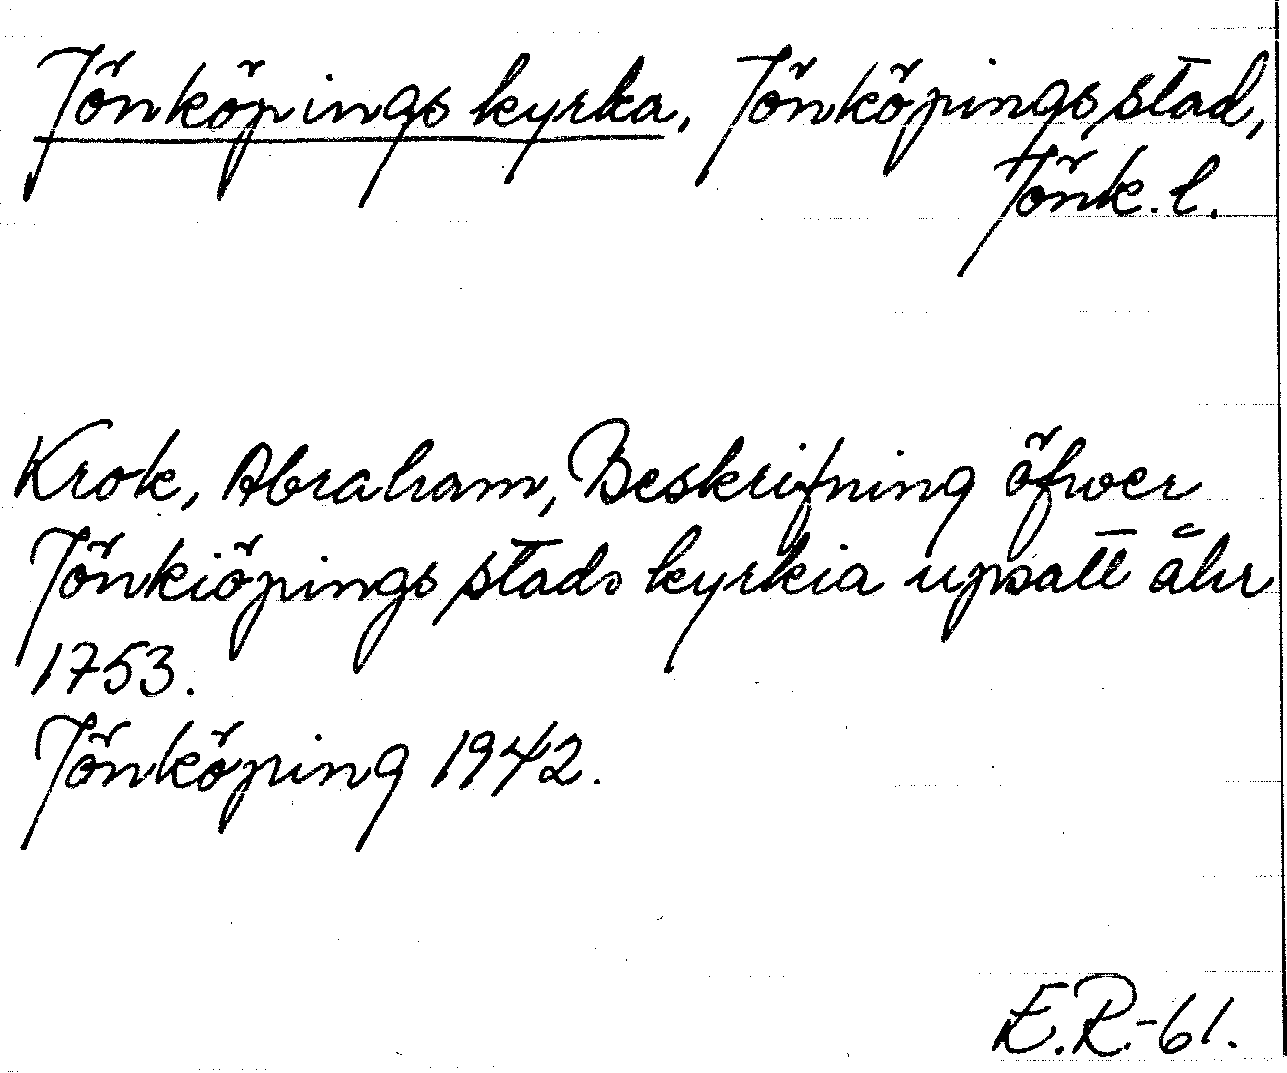 Jönköpings kyrka, Jönköpings stad,
Jönk. l.
Krok, Abraham, Beskrifning öfwer
Jönkiöpings stads kyrkia upsatt åhr
1753.
Jönköping 1942.
E.R.-61.